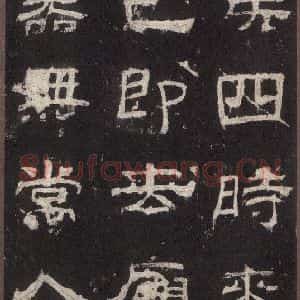 侯四時來
已即去廟
器無常人
Shufawang.CN